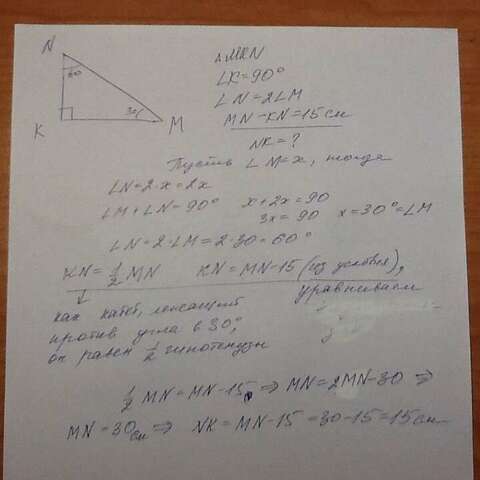 N
60
K
30
M
△MKN
∠K=90°
∠N=2∠M
MN-KN=15 см
NK=?
Пусть ∠M=x, тогда
∠N=2·x=2x
∠M+∠N=90° x+2x=90
3x=90 x=30°=∠M
∠N=2·∠M=2·30=60°
KN=½MN KN=MN-15 (из условия),
уравниваем
как катет, лежащий
против угла в 30°,
он равен ½ гипотенузы
½MN=MN-15 ⇒ MN=2MN-30 ⇒
MN=30см ⇒ NK=MN-15=30-15=15см